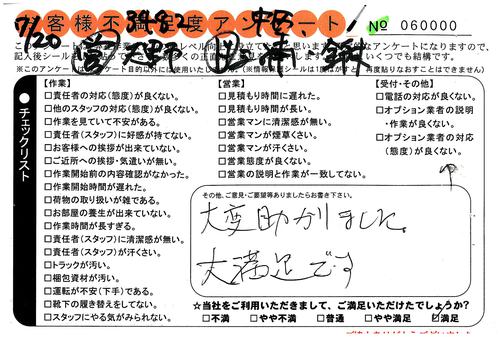 お客様不満足度アンケート
№ 060000
7/20
3482
●チェックリスト
【作業】
□責任者の対応(態度)が良くない。
□他のスタッフの対応(態度)が良くない。
□作業を見ていて不安がある。
□責任者(スタッフ)に好感が持てない。
□お客様への挨拶が出来ていない。
□ご近所への挨拶・気遣いが無い。
□作業開始前の内容確認がなかった。
□作業開始時間が遅れた。
□荷物の取り扱いが雑である。
□お部屋の養生が出来ていない。
□作業時間が長すぎる。
□責任者(スタッフ)に清潔感が無い。
□責任者(スタッフ)が汗くさい。
□トラックが汚い。
□梱包資材が汚い。
□運転が不安(下手)である。
□靴下の履き替えをしてない。
□スタッフにやる気がみられない。
【営業】
□見積もり時間に遅れた。
□見積もり時間が長い。
□営業マンに清潔感が無い。
□営業マンが煙草くさい。
□営業マンが汗くさい。
□営業態度が良くない。
□営業の説明と作業が一致してない。
【受付・その他】
□電話の対応が良くない。
□オプション業者の説明
・作業が良くない。
□オプション業者の対応
(態度)が良くない。
その他、ご意見・ご要望等ありましたらお書き下さい。
大変助かりました。
大満足です
☆当社をご利用いただきまして、ご満足いただけたでしょうか?
□不満 □やや不満 □普通 □やや満足 ☑満足